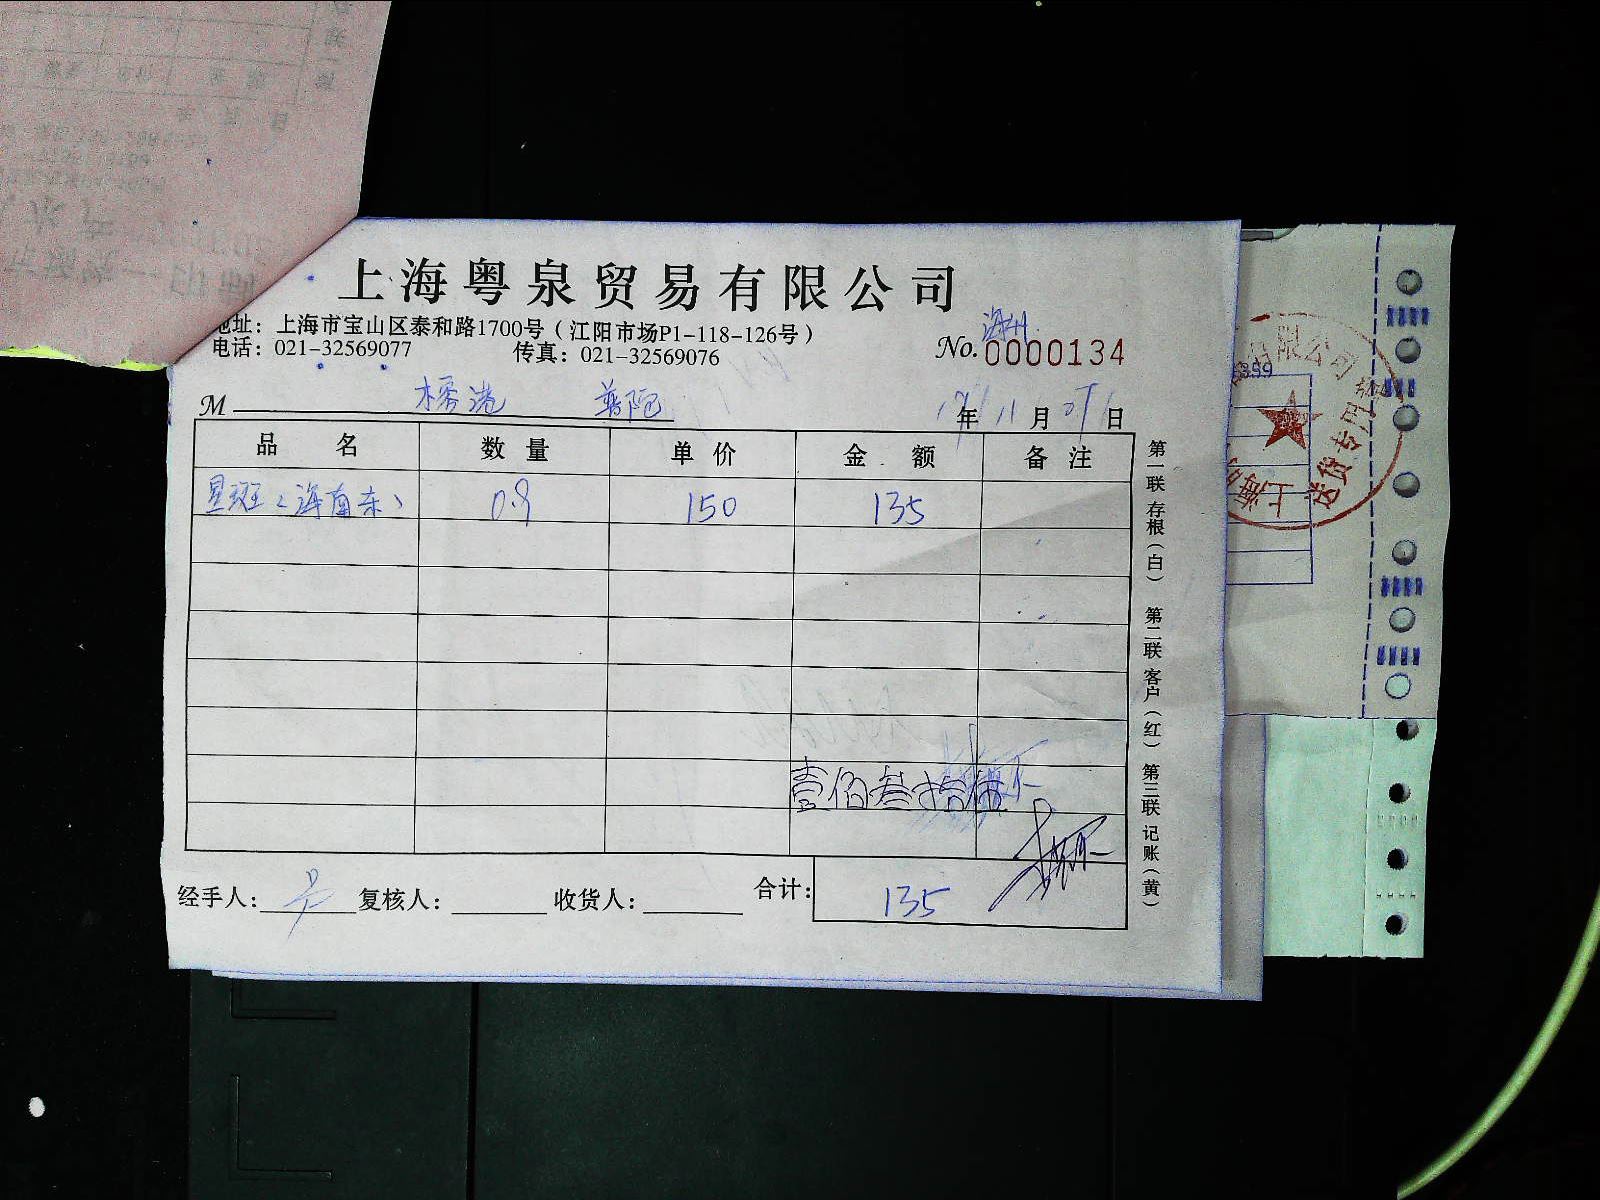 上海粤泉贸易有限公司
地址：上海市宝山区泰和路1700号（江阳市场P1-118-126号）
电话：021-32569077 传真：021-32569076
No. 0000134
M 普陀
年 11 月 日
品名 数量 单价 金额 备注
星斑（海南东） 0.9 150 135
壹佰叁拾
经手人： 复核人： 收货人： 合计： 135
第一联 存根（白） 第二联 客户（红） 第三联 记账（黄）
有限公司
上海
送货专用